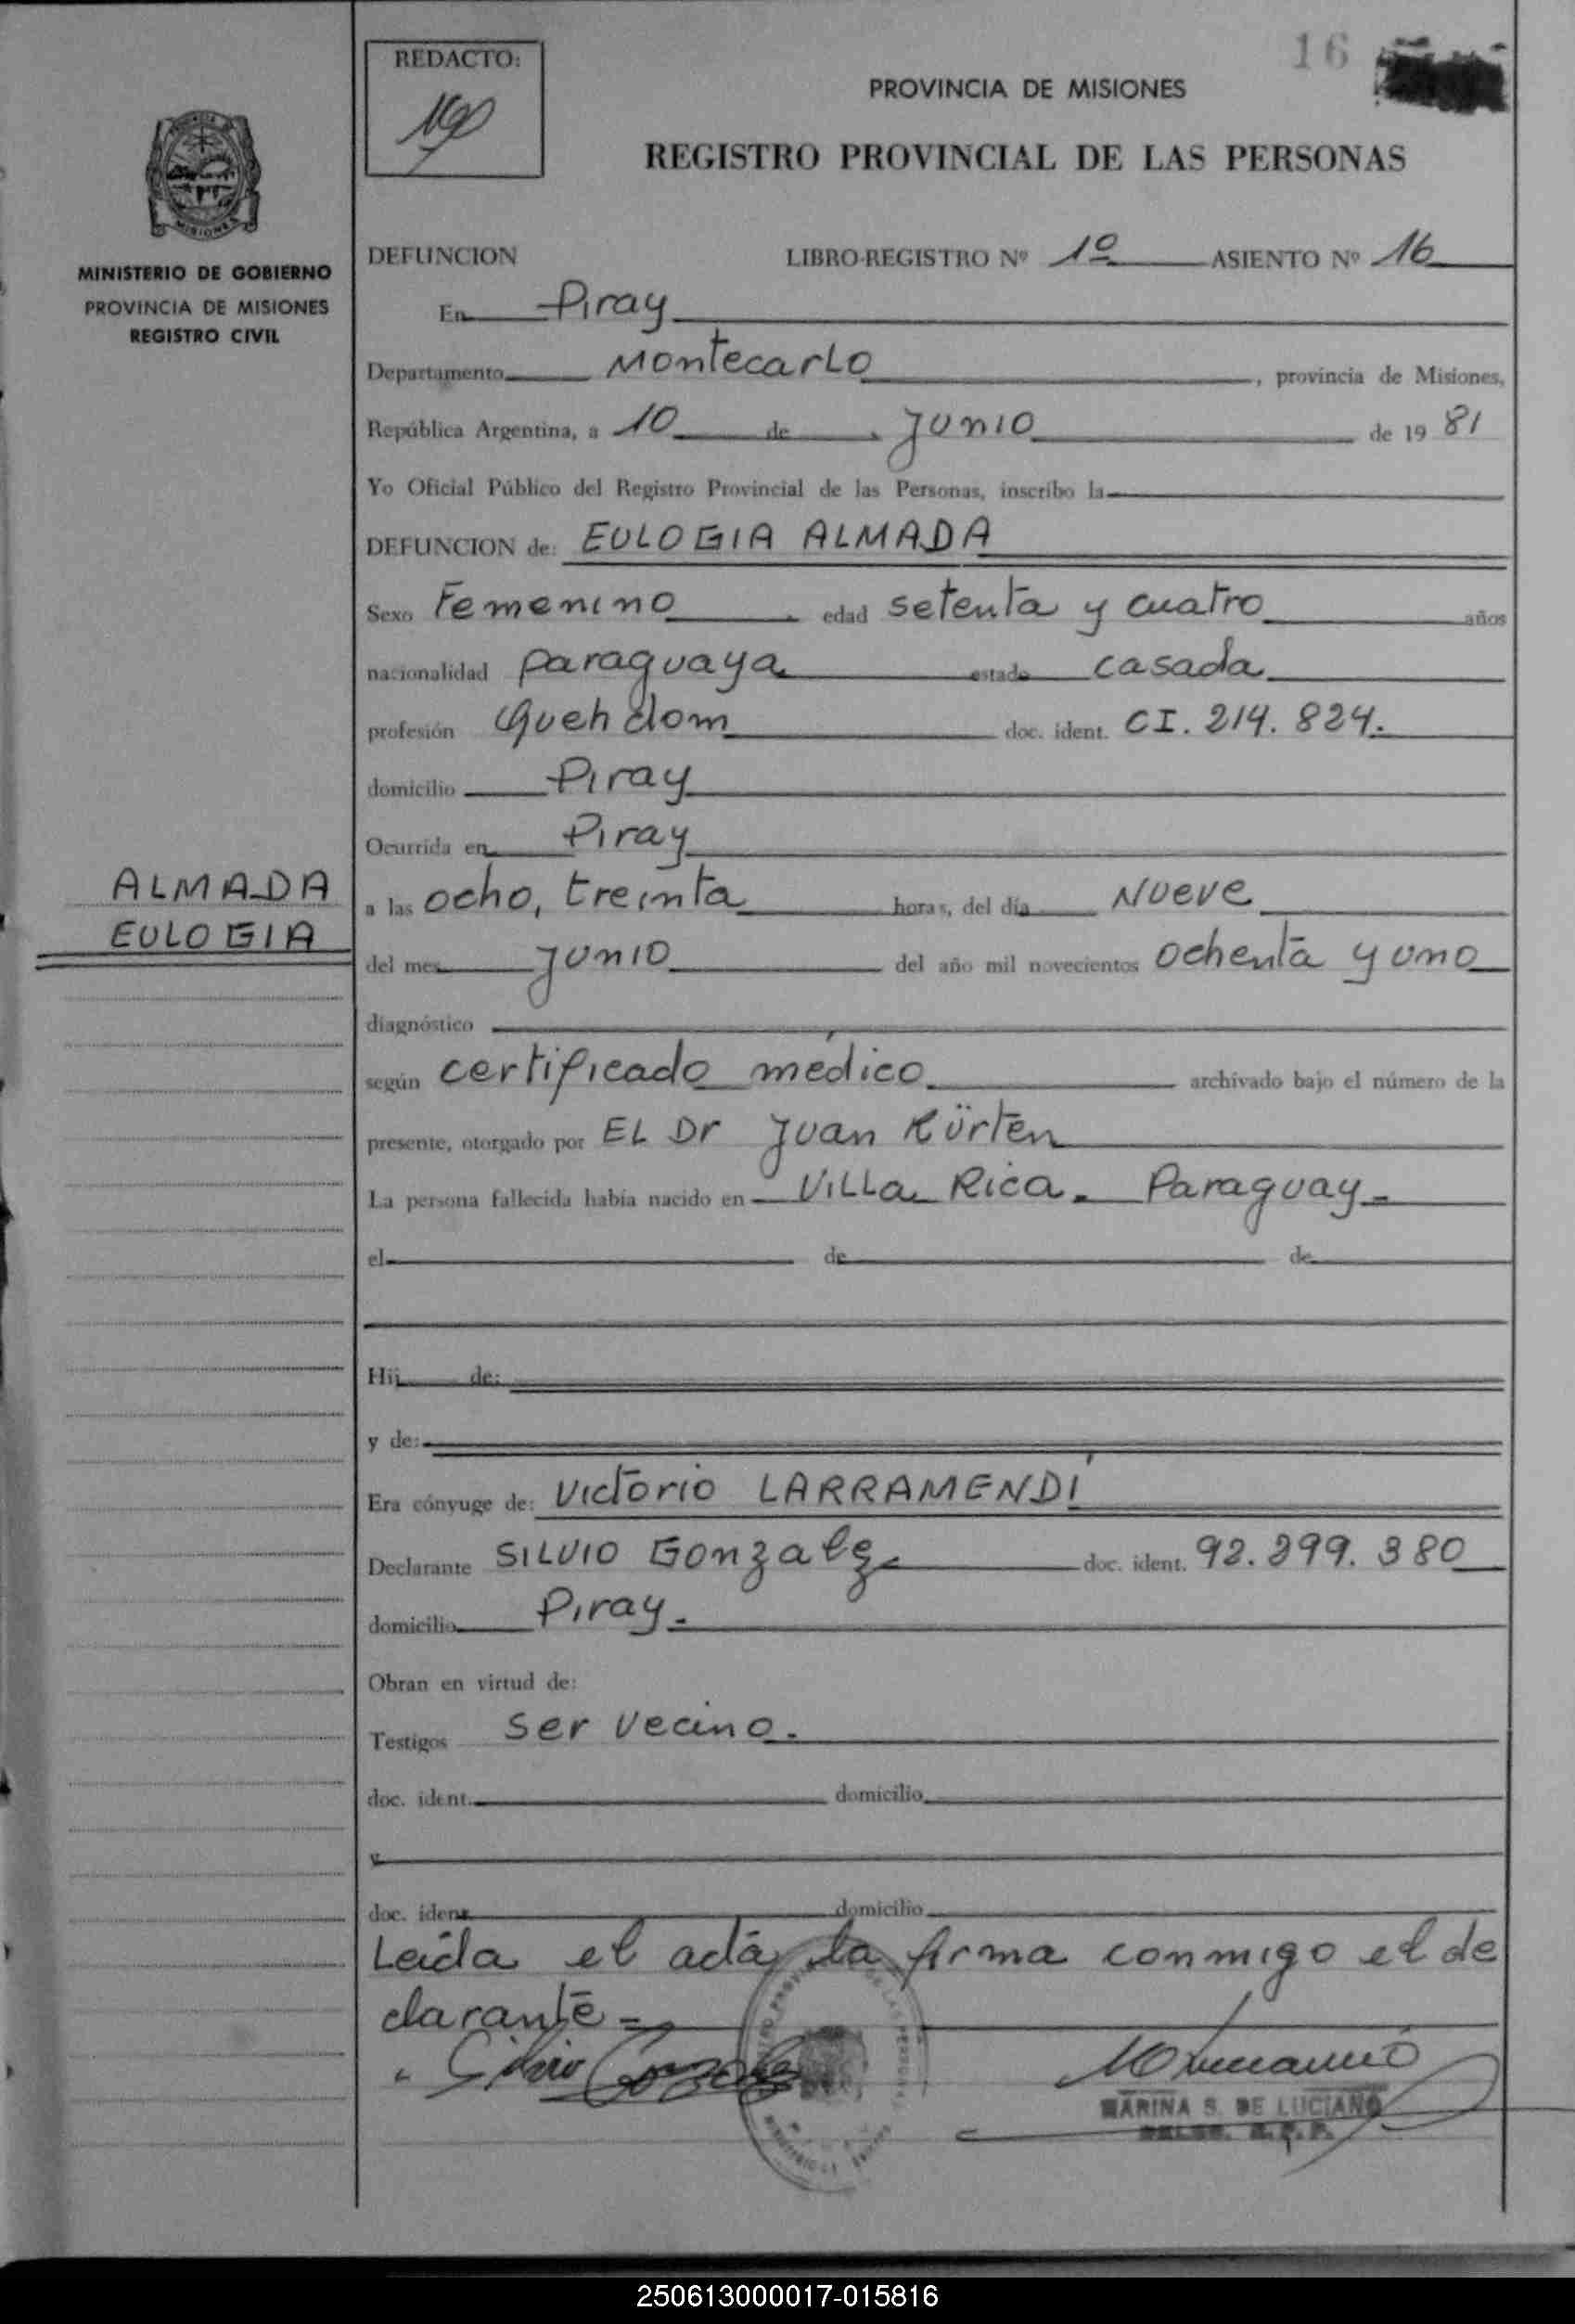 REDACTO:
16
PROVINCIA DE MISIONES
REGISTRO PROVINCIAL DE LAS PERSONAS
MISIONES
MINISTERIO DE GOBIERNO
PROVINCIA DE MISIONES
REGISTRO CIVIL
DEFUNCION LIBRO-REGISTRO Nº 1º ASIENTO Nº 16
En Piray
Departamento Montecarlo, provincia de Misiones,
República Argentina, a 10 de Junio de 19 81
Yo Oficial Público del Registro Provincial de las Personas, inscribo la
DEFUNCION de: EULOGIA ALMADA
Sexo Femenino edad setenta y cuatro años
nacionalidad paraguaya estado casada
profesión Queh dom doc. ident. CI. 214. 824.
domicilio Piray
Ocurrida en Piray
ALMADA
EULOGIA
a las ocho, treinta horas, del día Nueve
del mes Junio del año mil novecientos ochenta y uno
diagnóstico
según certificado médico archivado bajo el número de la
presente, otorgado por EL Dr Juan Kürten
La persona fallecida había nacido en Villa Rica. Paraguay-
el de de
Hij de:
y de:
Era cónyuge de: Victorio LARRAMENDI
Declarante SILVIO Gonzalez doc. ident. 92. 299. 380
domicilio Piray.
Obran en virtud de:
Testigos ser vecino.
doc. ident. domicilio
y
doc. ident. domicilio
Leída el acta, la firma conmigo el de
clarante =
Silvio Gonzalez
MARINA S. DE LUCIANO
250613000017-015816